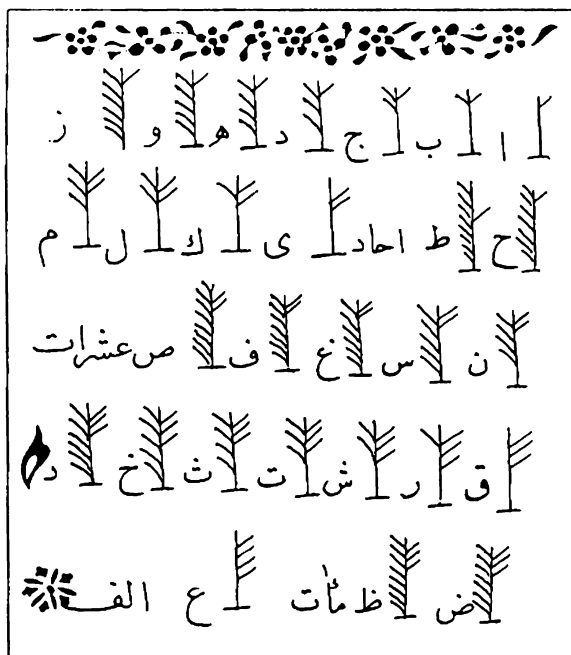 ا ب ج د ه و ز
ح ط احاد ى ك ل م
ن س غ ف ص عشرات
ق ر ش ت ث خ د
ض ظ مأت ع الف